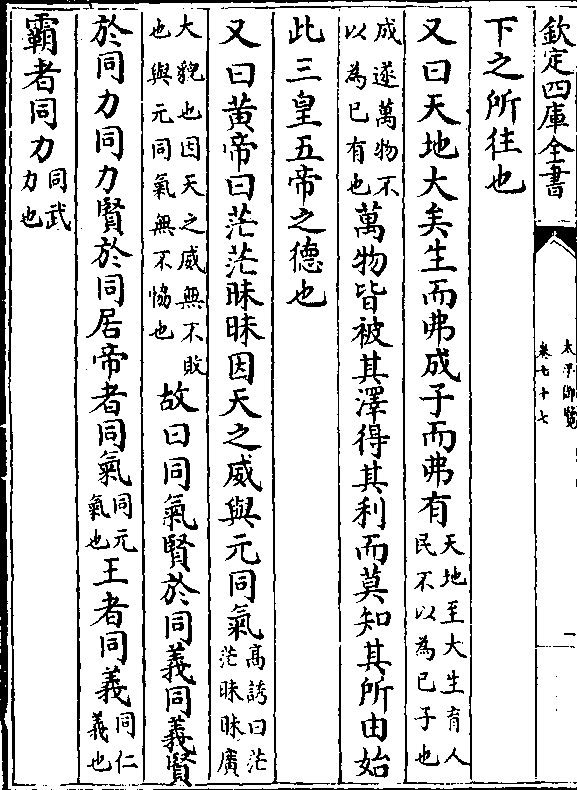 欽定四庫全書
太平御覽
卷七十七
一
下之所往也
又曰天地大矣生而弗成子而弗有天地至大生育人民不以為已子也
成遂萬物不以為已有也萬物皆被其澤得其利而莫知其所由始
此三皇五帝之德也
又曰黄帝曰茫茫昧昧因天之威與元同氣高誘曰茫茫昧昧廣
大貌也因天之威無不敗也與元同氣無不恊也故曰同氣賢於同義同義賢
於同力同力賢於同居帝者同氣同元氣也王者同義同仁義也
霸者同力同武力也